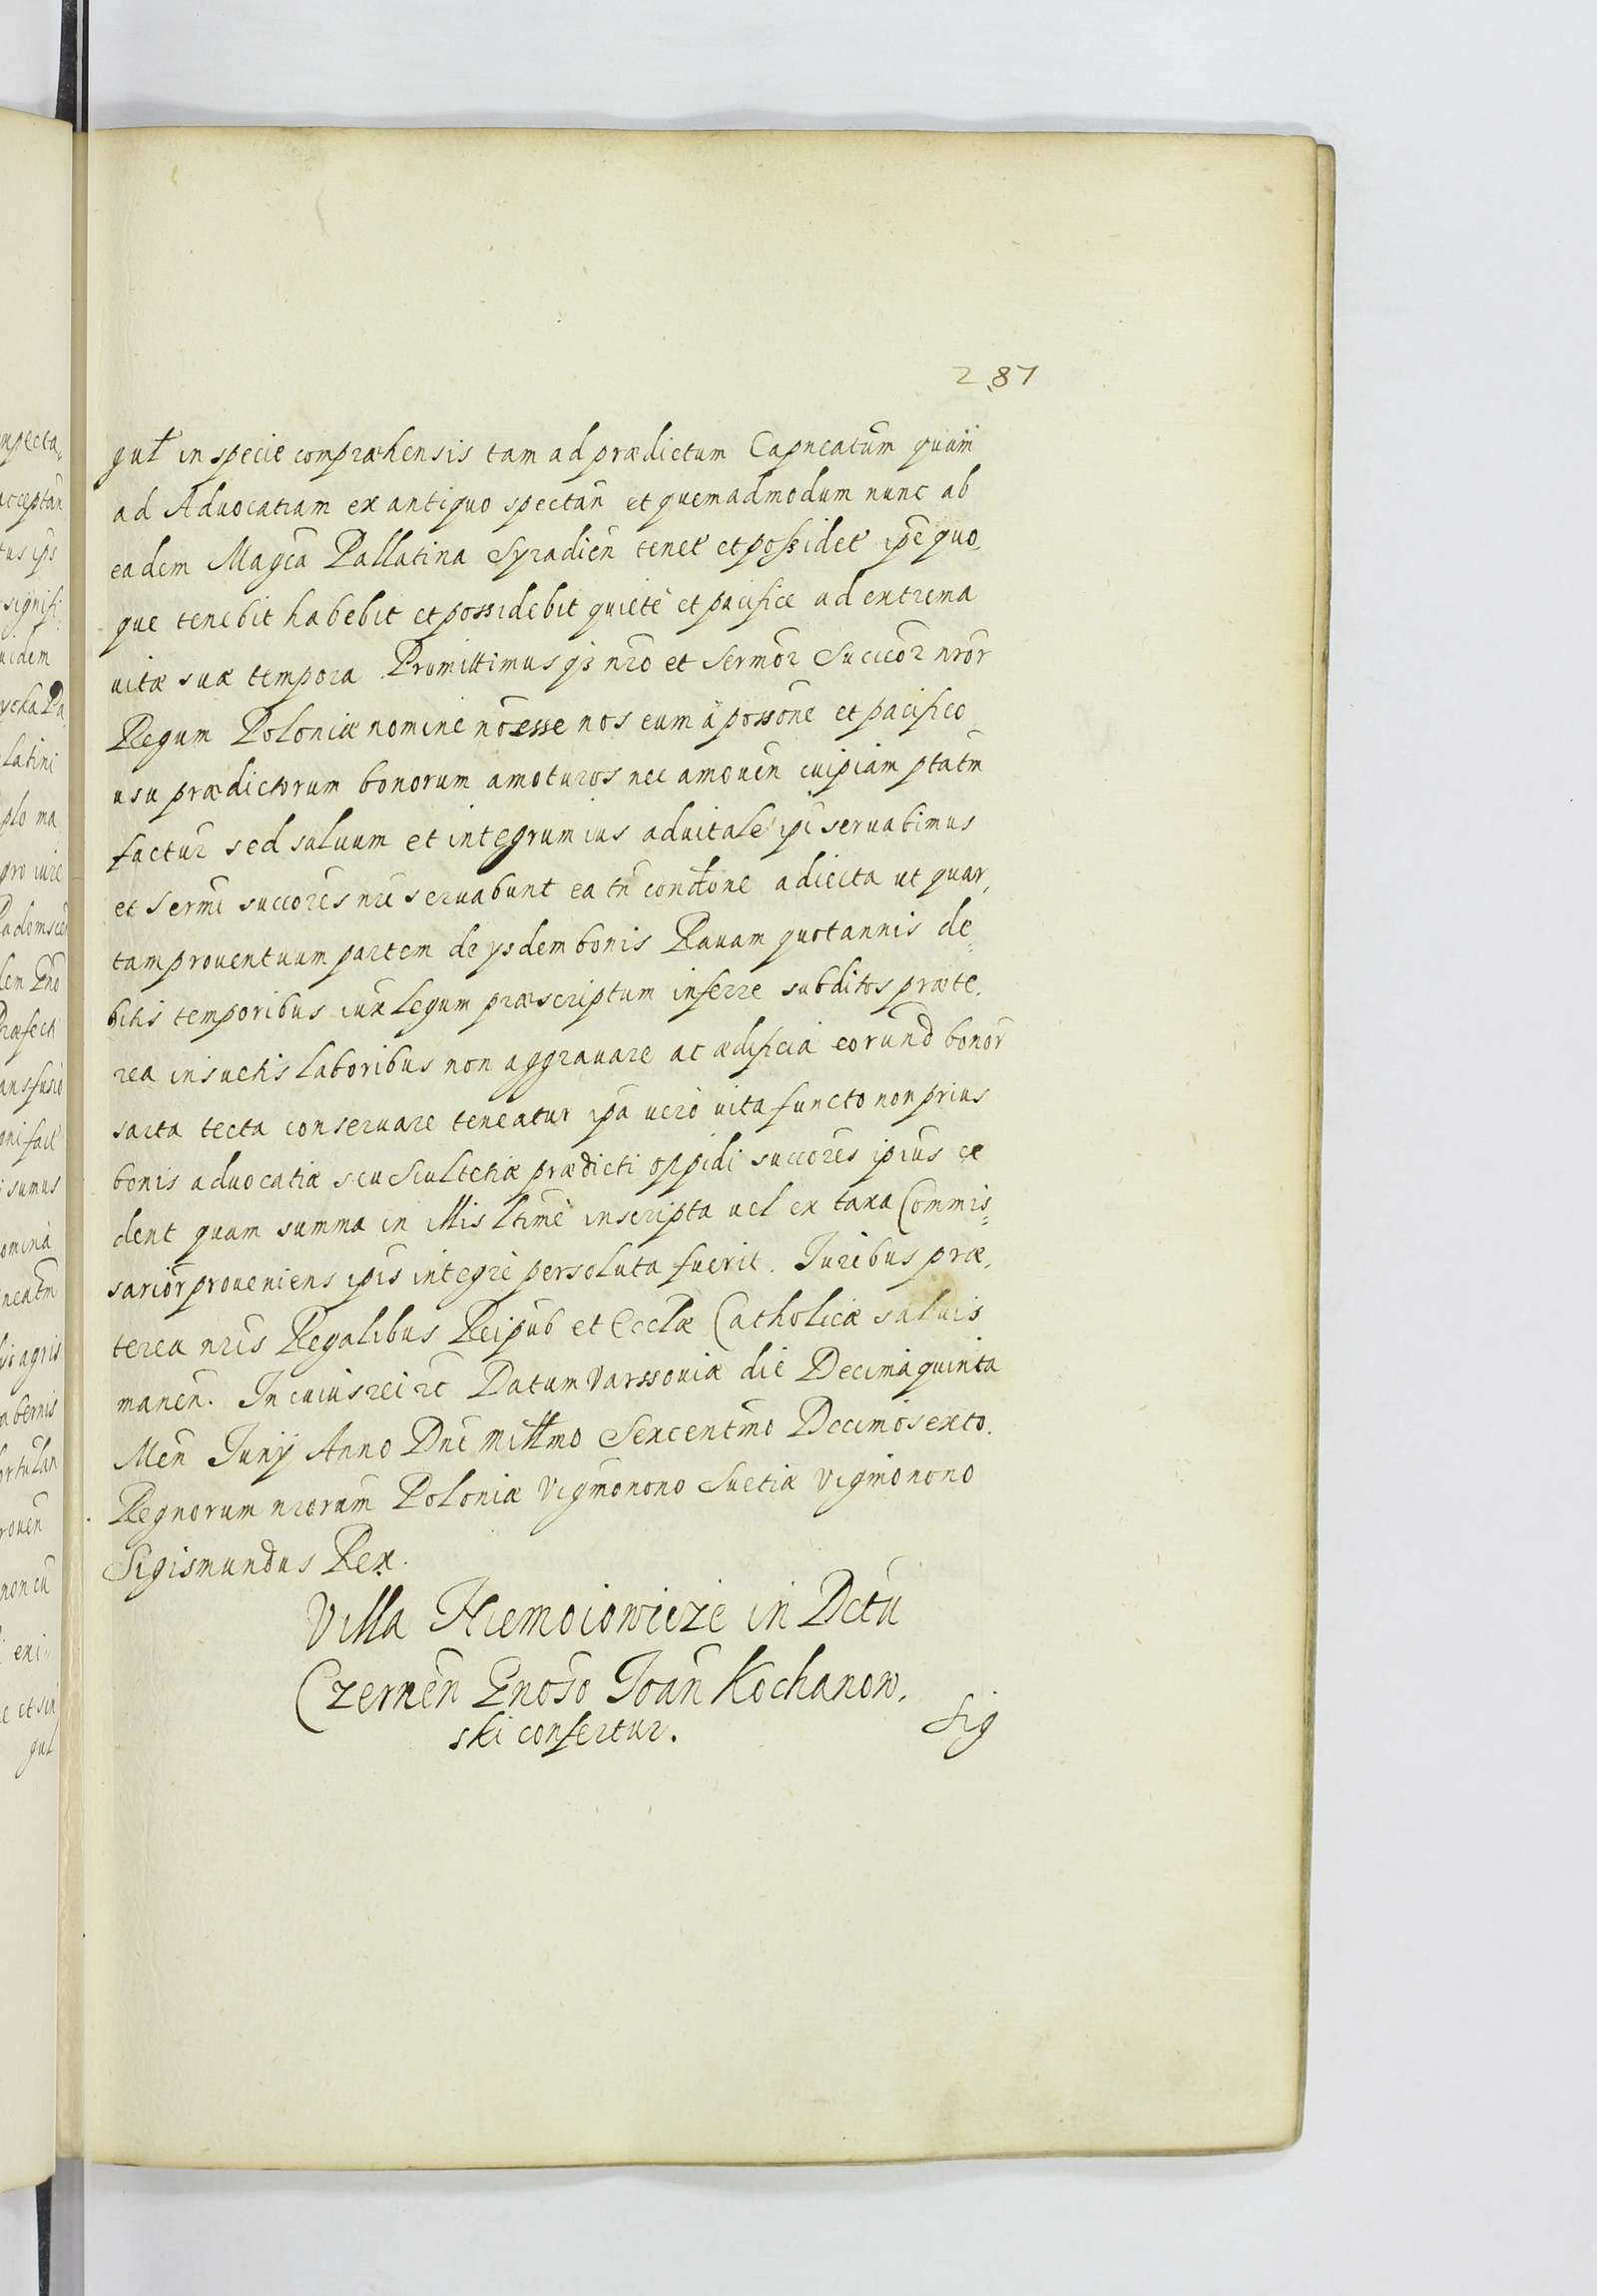 287
gul̃ in specie compræhensis tam ad prædictum Capneatum quam
ad Aduocatiam ex antiquo spectan̄ et quemadmodum nunc ab
eadem Magca Pallatina Syradien̄ tenet et possidet ipe quo,
que tenebit habebit et possidebit quietè et pacifice ad extrema
uitæ suæ tempora Promittimus qз nro et Sermor̄ Succor̄ nror
Regum Poloniæ nomine nō esse nos eum à possone et pacifico
usu prædictorum bonorum amoturos nec amouen̄ cuipiam ptatm
factur̄ sed saluum et integrum ius aduitale ipi seruabimus
et Sermi succores nri seruabunt ea tn̄ condone adiecta ut quar,
tam prouentuum partem de ysdem bonis Rauam quotannis de=
bitis temporibus iuxa legum præscriptum inferre subditos præte,
rea insuetis laboribus non aggrauare ac ædificia eorund bonor̄
sarta tecta conseruare teneatur ipa uero uita functo non prius
bonis aduocatiæ seu Scultetiæ prædicti oppidi succores ipius ce
dent quam summa in illis ltime inscripta uel ex taxa Commis=
sarior̄ proueniens ipis integre persoluta fuerit. Iuribus præ,
terea nris Regalibus Reipub et Ecclæ Catholicæ saluis
manen̄. In cuius rei rc̄ Datum Varssouiæ die Decima quinta
Men̄ Iunÿ Anno Dni Millmo Sexcentmo Decimosexto.
Regnorum nrorum Poloniæ Vigmonono Suetiæ Vigmonono
Sigismundus Rex.
Villa Hiemoiowicze in Dctu
Czernen̄ Gnoso Ioan̄ Kochanow,
ski confertur.
Sig